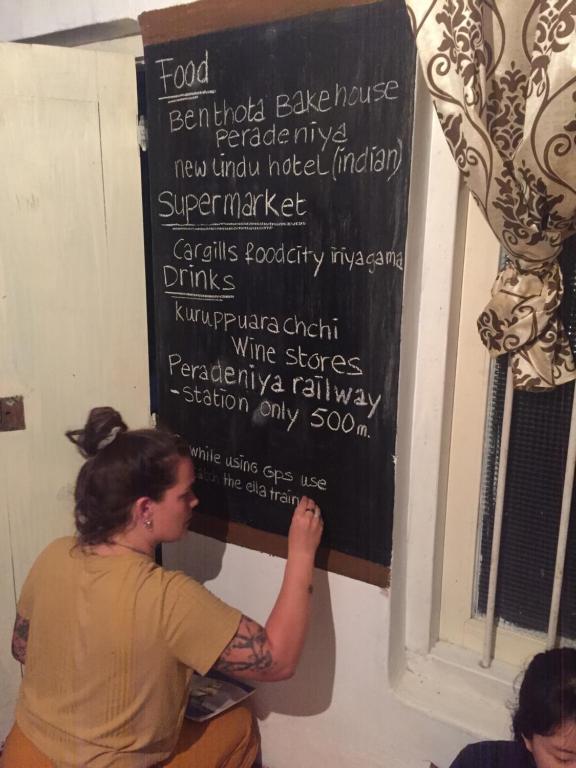 Food
Benthota Bakehouse
peradeniya
new lindu hotel (indian)
Supermarket
Cargills foodcity iriyagama
Drinks
kuruppuarachchi
Wine stores
Peradeniya railway
-station only 500m.
while using Gps use
the ella train